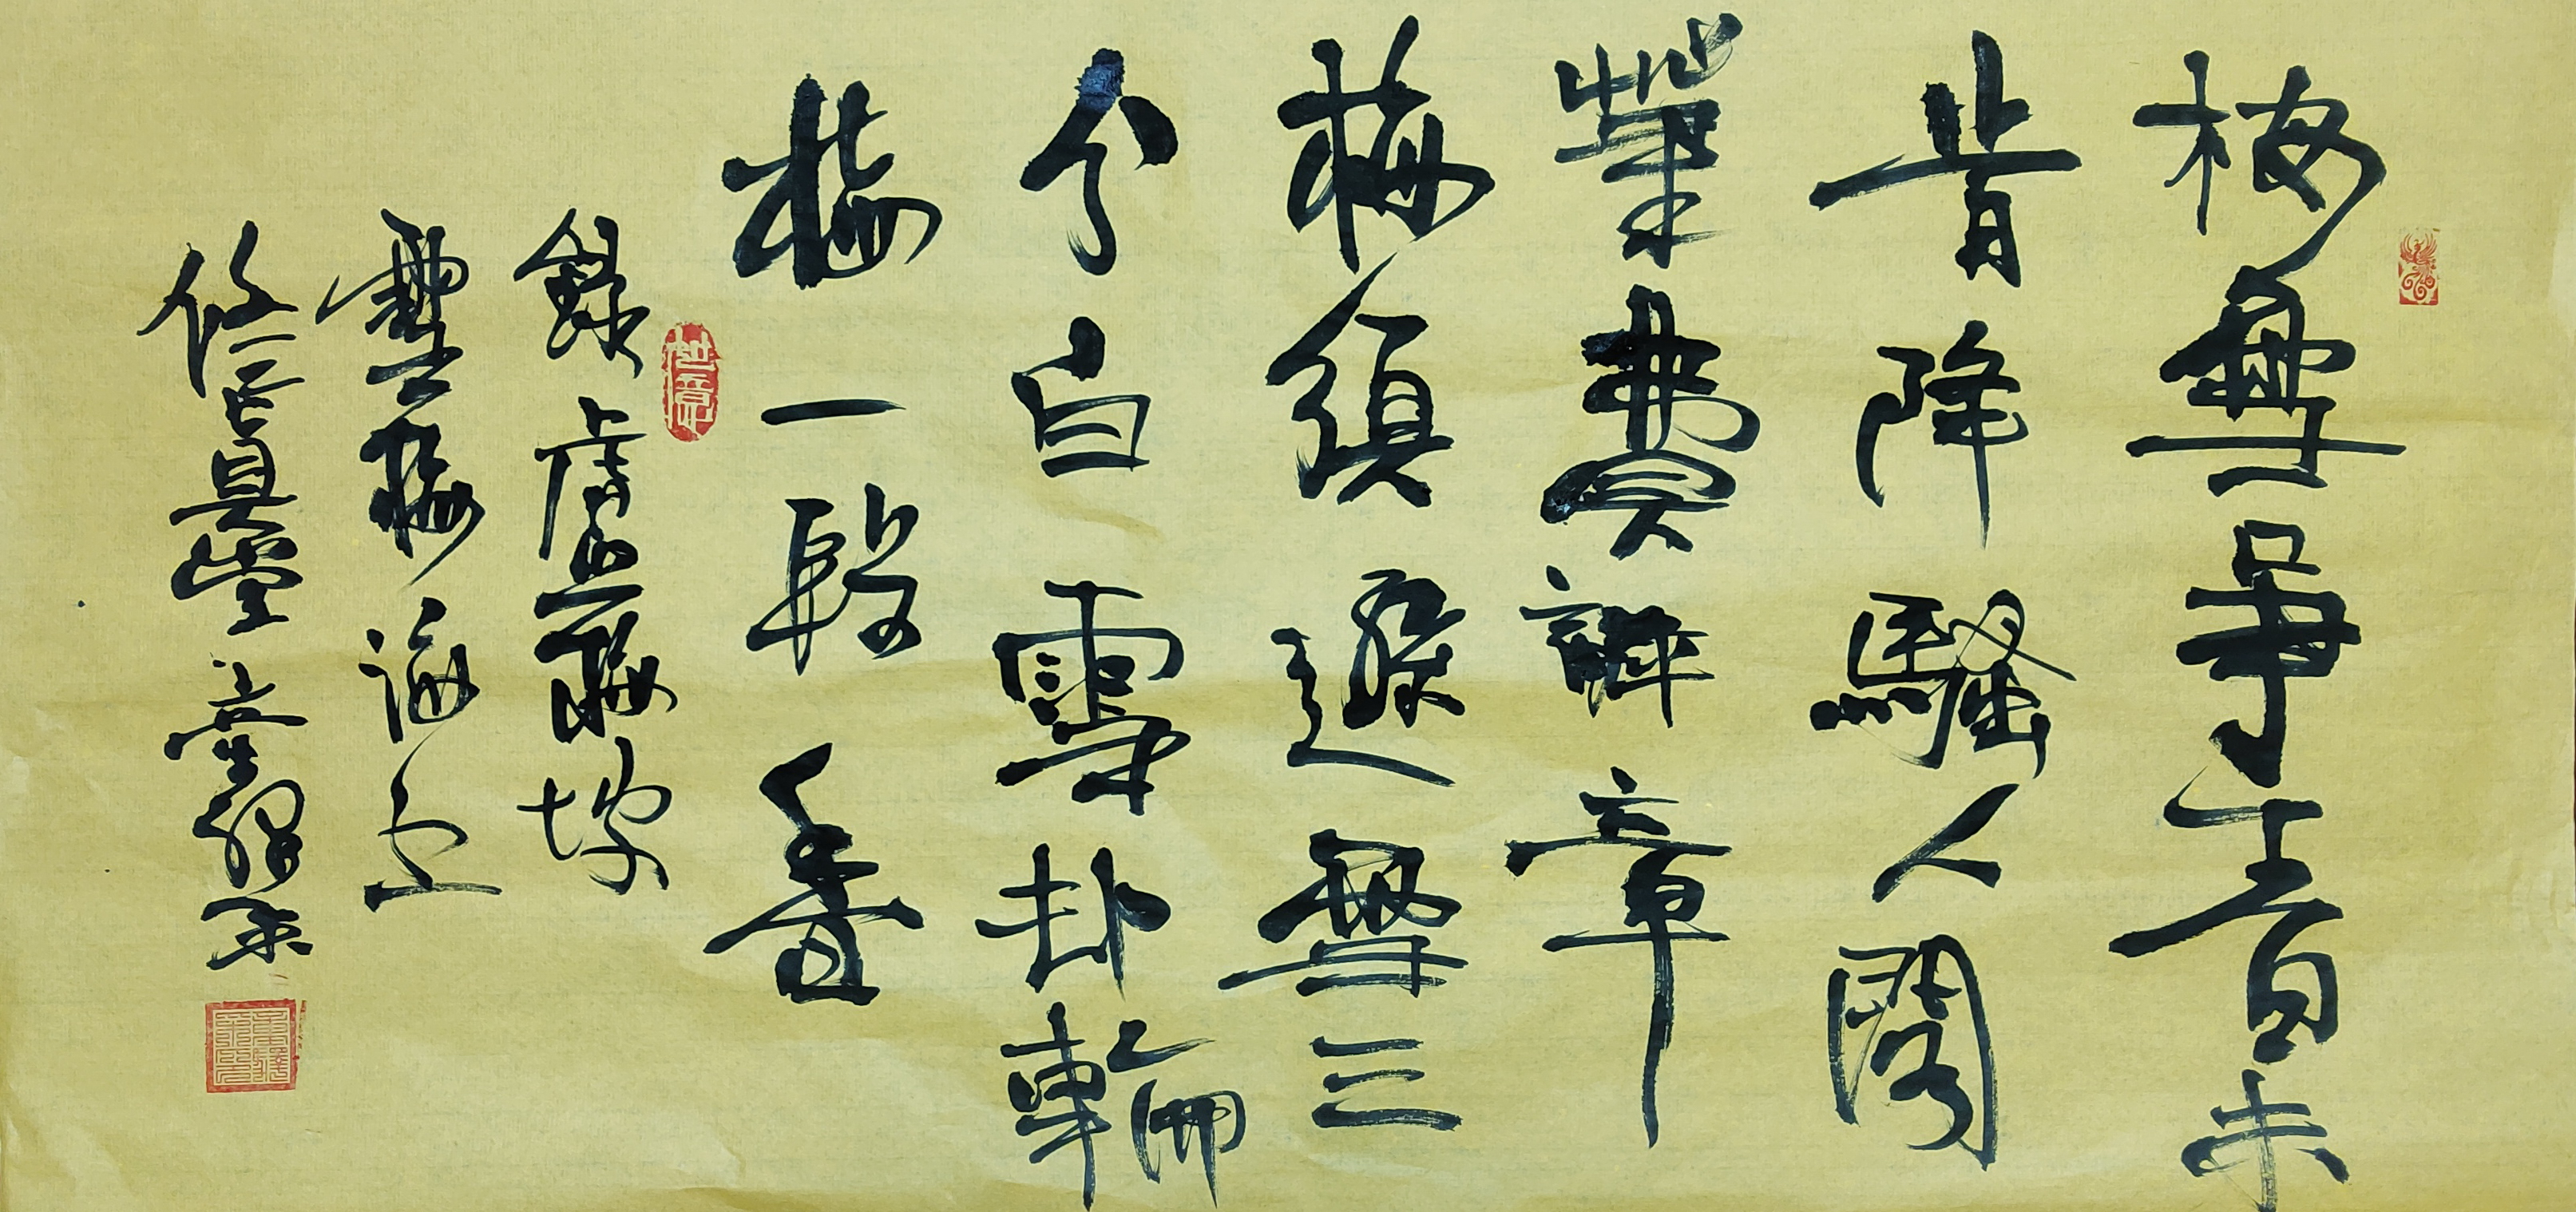 梅雪爭春未
肯降騷人閣
筆費評章
梅須遜雪三
分白雪却輸
梅一段香
錄盧梅坡
雪梅